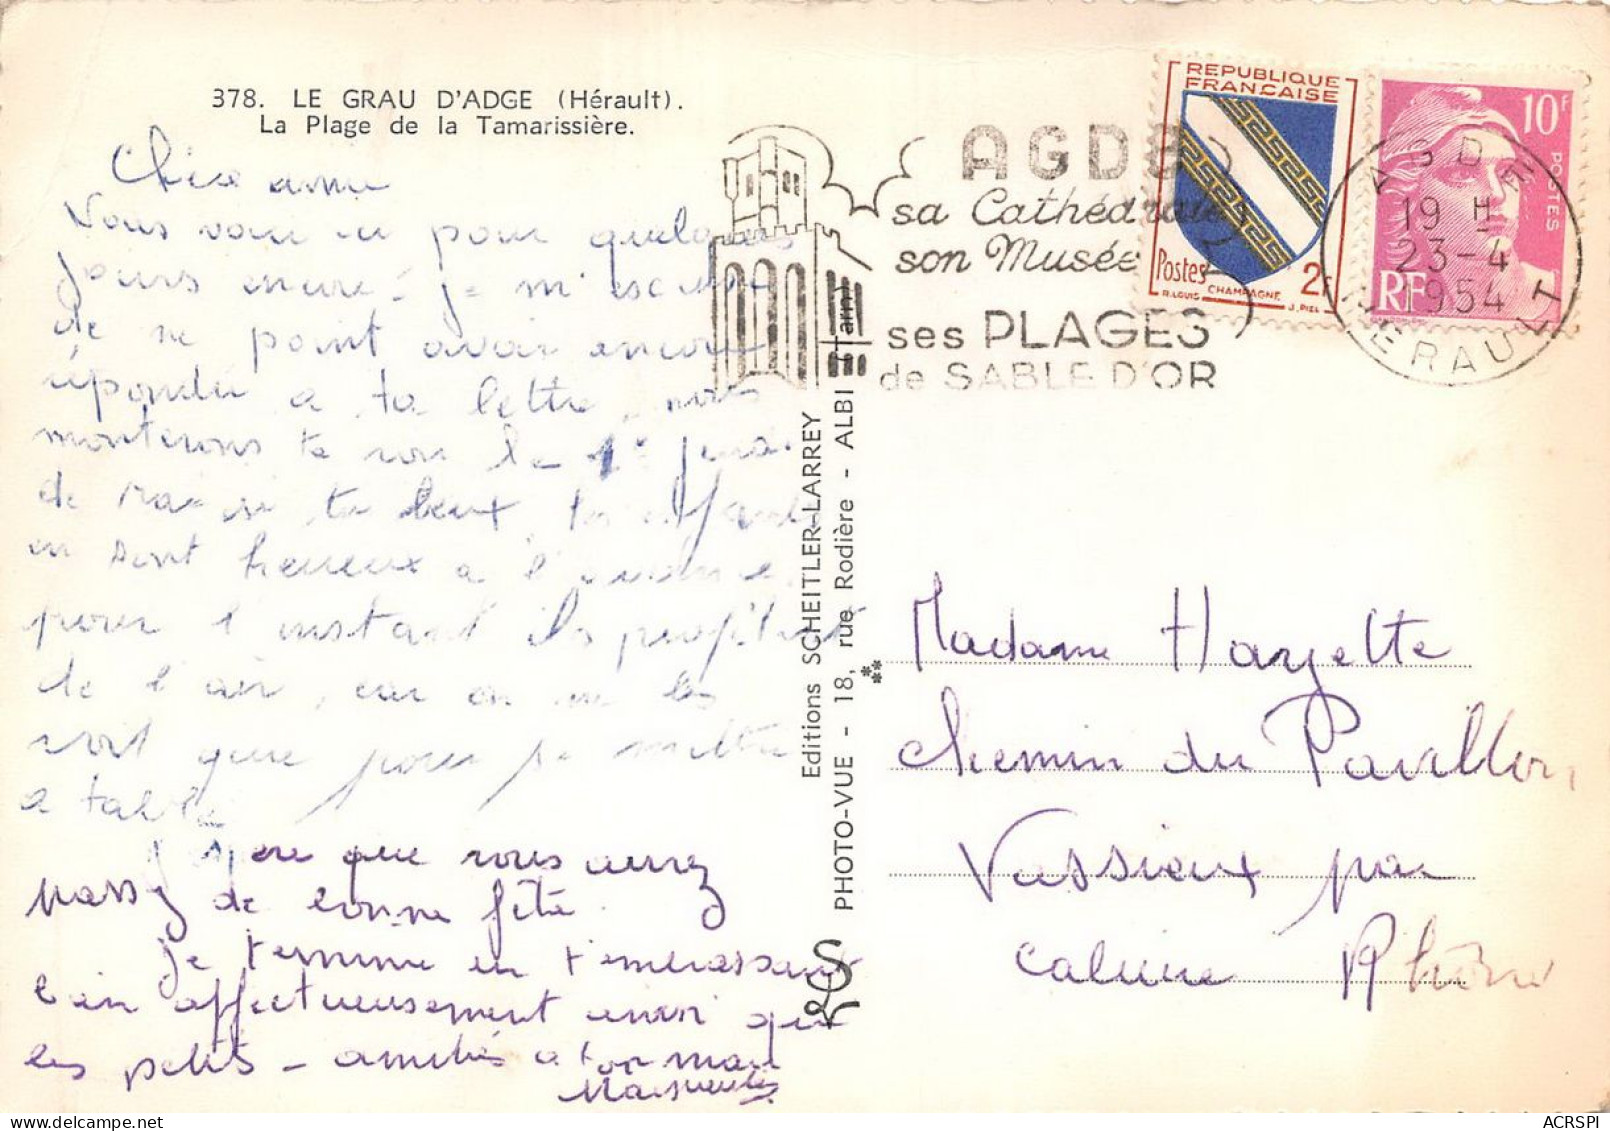 378. LE GRAU D'ADGE (Hérault).
La Plage de la Tamarissière.
Chère amie
Nous voici ici pour quelques
jours encore - je m'excuse
de ne point avoir encore
répondu a ta lettre, nous
monterons te voir le 1er
de Mai si tu veux, les enfants
en sont heureux a l'avance
pour l'instant ils profitent
de l'air, car on ne les
voit guère pour se mettre
a table
J'espère que vous aurez
passé de bonne fête.
Je termine en t'embrassant
bien affectueusement ainsi que
les petits - amitiés a ton mari
AGDE
sa Cathédrale
son Musée
ses PLAGES
de SABLE D'OR
REPUBLIQUE
FRANÇAISE
Postes 2f
R. LOUIS CHAMPAGNE J. PIEL
10f
POSTES
RF
AGDE
19 H
23-4
1954
HERAULT
Editions SCHEITLER-LARREY
PHOTO-VUE - 18, rue Rodière - ALBI (Tarn)
Madame Hayette
Chemin du Pavillon
Vassieux par
Caluire Rhône
ACRSPI